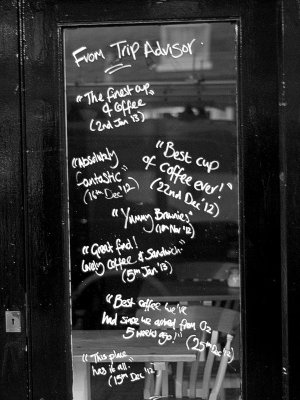 From Trip Advisor.
"The finest cup
of coffee"
(2nd Jan '13)
"Absolutely
fantastic"
(16th Dec '12)
"Best cup
of coffee ever!"
(22nd Dec '12)
"Yummy Brownies"
(18th Nov '12)
"Great find!
Lovely coffee & Sandwich"
(5th Jan '13)
"Best coffee we've
had since we arrived from Oz
5 weeks ago!"
(25th Dec '12)
"This place
has it all.
(15th Dec '12)